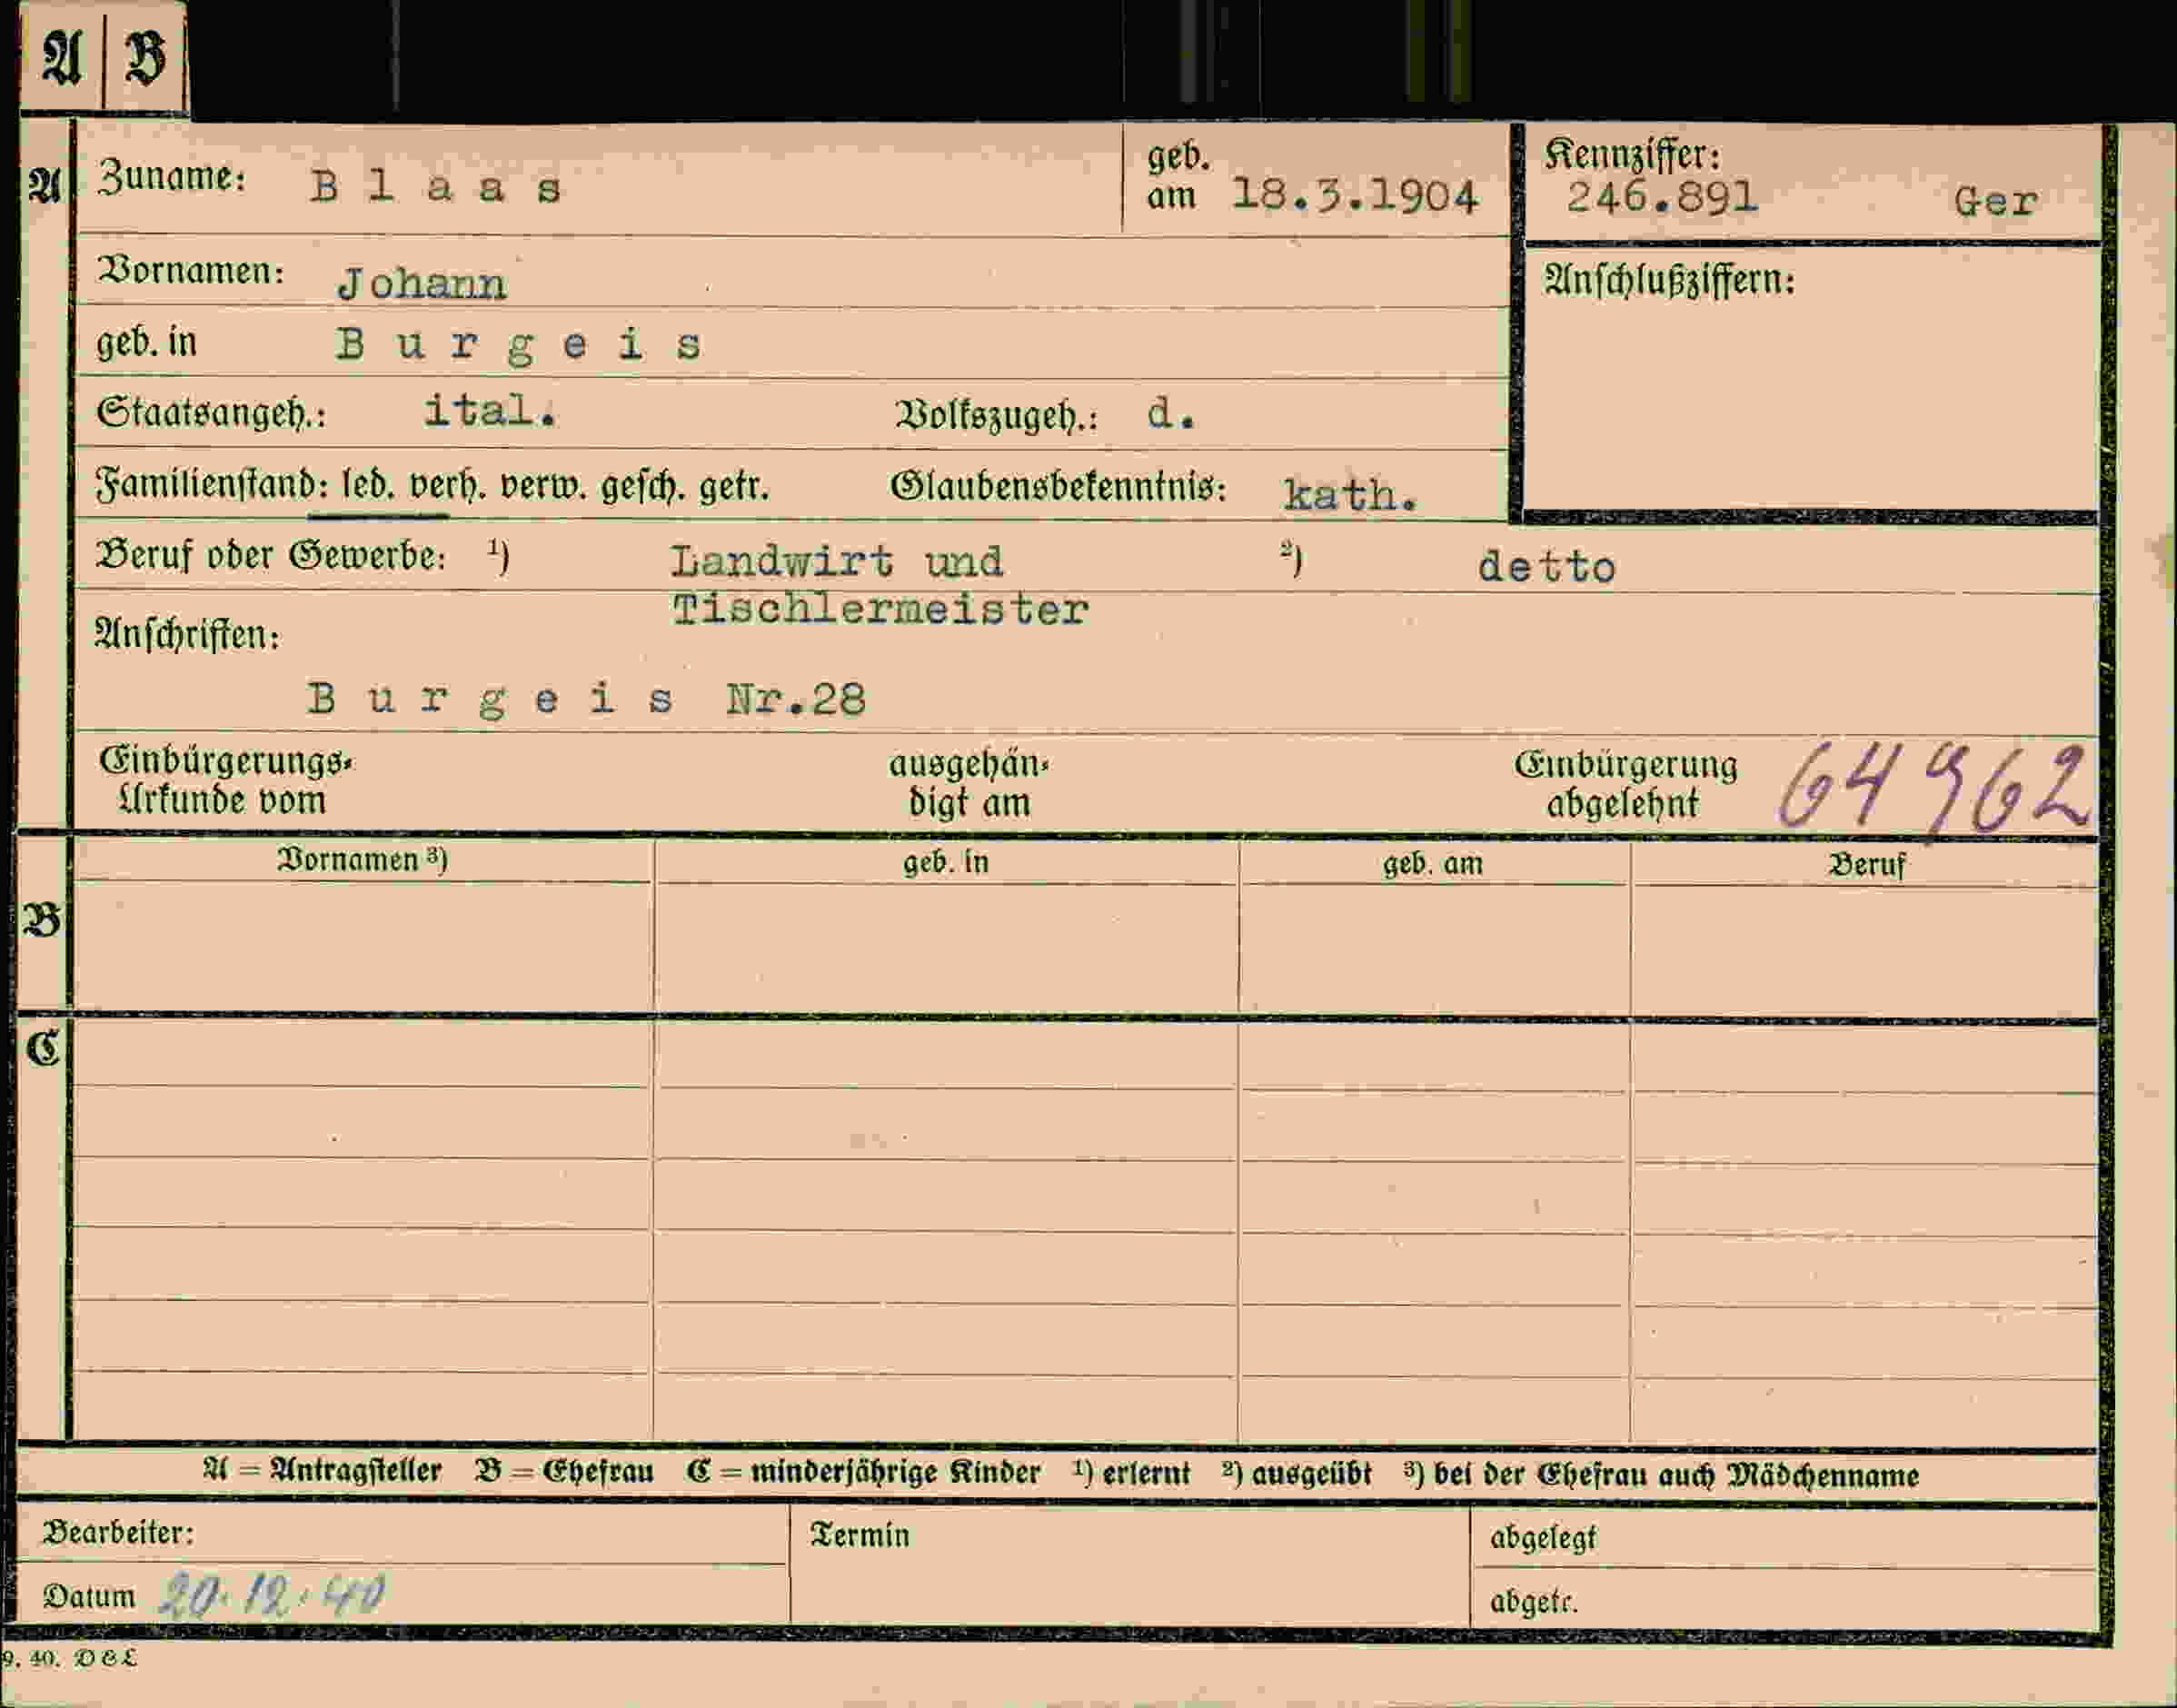 A B
A Zuname: Blaas geb. am 18.3.1904 Kennziffer: 246.891 Ger
Vornamen: Johann Anschlußziffern:
geb. in Burgeis
Staatsangeh.: ital. Volkszugeh.: d.
Familienstand: led. verh. verw. gesch. getr. Glaubensbekenntnis: kath.
Beruf oder Gewerbe: ¹) Landwirt und ²) detto
Tischlermeister
Anschriften:
Burgeis Nr.28
Einbürgerungs- ausgehän- Einbürgerung 64962
Urkunde vom digt am abgelehnt
Vornamen ³) geb. in geb. am Beruf
B
C
A = Antragsteller B = Ehefrau C = minderjährige Kinder ¹) erlernt ²) ausgeübt ³) bei der Ehefrau auch Mädchenname
Bearbeiter: Termin abgelegt
Datum 20.12.40 abgetr.
9. 40. DBE